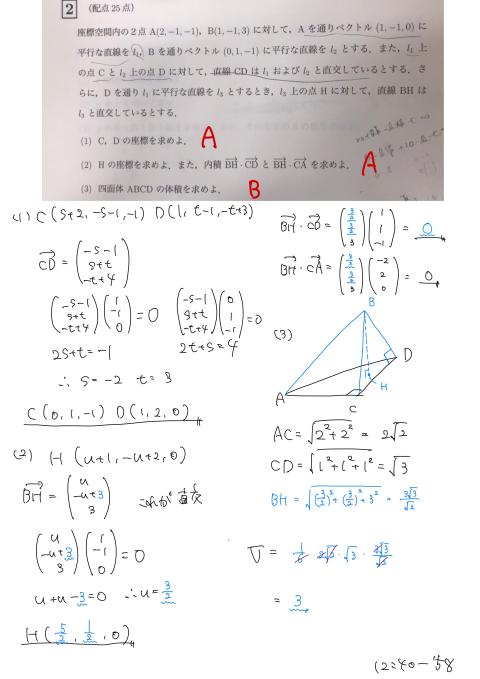 2 (配点25点)
座標空間内の2点 A(2, −1, −1), B(1, −1, 3) に対して, A を通りベクトル (1, −1, 0) に
平行な直線を l₁, B を通りベクトル (0, 1, −1) に平行な直線を l₂ とする. また, l₁ 上
の点 C と l₂ 上の点 D に対して, 直線 CD は l₁ および l₂ と直交しているとする. さ
らに, D を通り l₁ に平行な直線を l₃ とするとき, l₃ 上の点 H に対して, 直線 BH は
l₃ と直交しているとする.
(1) C, D の座標を求めよ. A
(2) H の座標を求めよ. また, 内積 BH・CD と BH・CA を求めよ. A
(3) 四面体 ABCD の体積を求めよ. B
(1) C(s+2, -s-1, -1) D(1, t-1, -t+3)
CD = (-s-1, s+t, -t+4)
(-s-1, s+t, -t+4)(1, -1, 0) = 0 (-s-1, s+t, -t+4)(0, 1, -1) = 0
2s+t = -1 2t+s = 4
∴ s = -2 t = 3
C(0, 1, -1) D(1, 2, 0)
(2) H(u+1, -u+2, 0)
BH = (u, -u+3, 3)
(u, -u+3, 3)(1, -1, 0) = 0
u+u-3=0 ∴ u = 3/2
H(5/2, 1/2, 0)
BH・CD = (3/2, 3/2, 3)(1, 1, -1) = 0
BH・CA = (3/2, 3/2, 3)(-2, 2, 0) = 0
(3)
B
D
H
A
C
AC = √2²+2² = 2√2
CD = √1²+1²+1² = √3
BH = √(3/2)²+(3/2)²+3² = 3√3/√2
V = 1/6・2√2・√3・3√3/√2
= 3